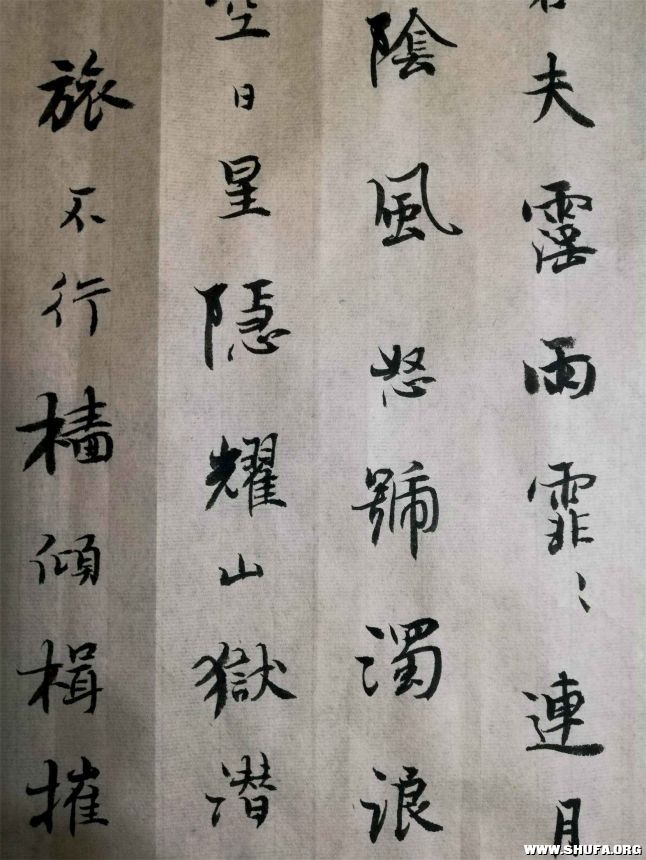 若夫霪雨霏〻連月
陰風怒號濁浪
空日星隱耀山獄潜
旅不行檣傾楫摧
WWW.SHUFA.ORG